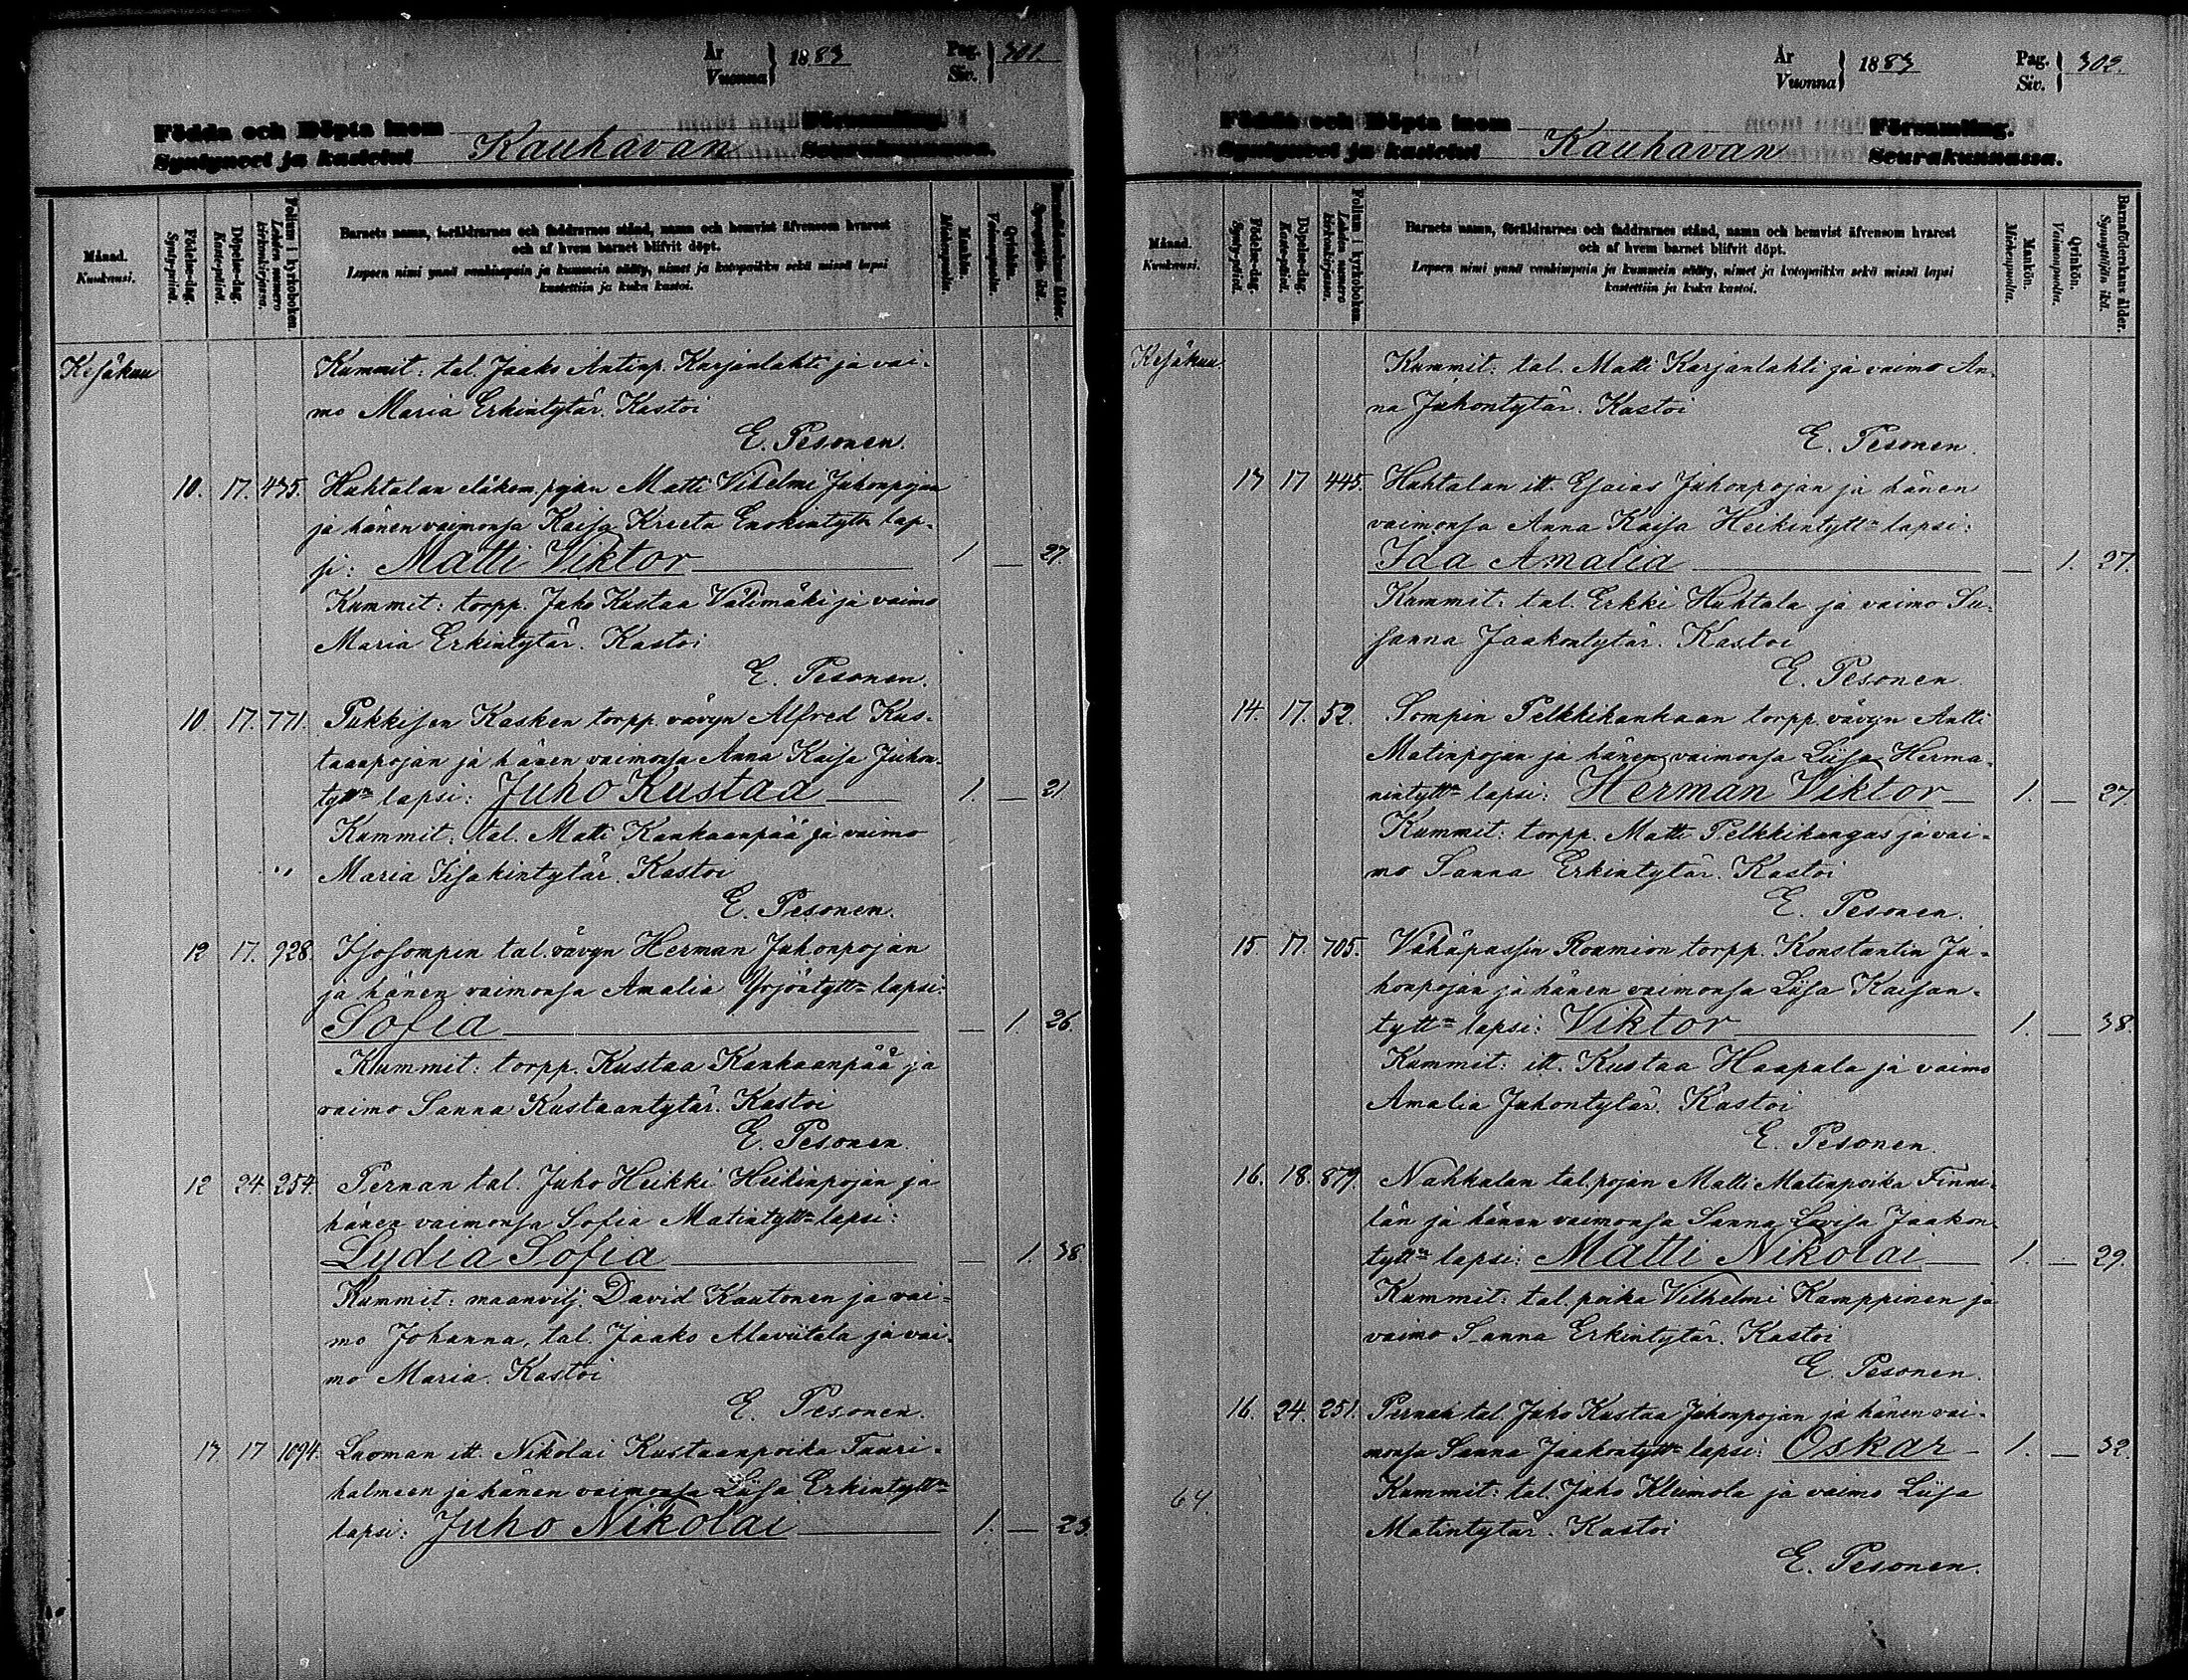 År
Vuonna } 1883 Pag.
Siv. } 301.
Födda och Döpta inom Församling.
Syntyneet ja kastetut Kauhavan Seurakunnassa.
Månad.
Kuukausi.
Födelse-dag.
Synty-päivä.
Döpelse-dag.
Kaste-päivä.
Folium i kyrkoboken.
Lehden numero kirkonkirjassa.
Barnets namn, föräldrarnes och faddrarnes stånd, namn och hemvist äfvensom hvarest
och af hvem barnet blifvit döpt.
Lapsen nimi ynnä vanhimpain ja kummein sääty, nimet ja kotopaikka sekä missä lapsi
kastettiin ja kuka kastoi.
Mankön.
Miehenpuolta.
Qvinkön.
Vaimonpuolta.
Barnaföderskans ålder.
Synnyttäjän ikä.
Kesäkuu Kummit: tal. Jaako Antinp. Karjanlahti ja vai-
mo Maria Erkintytär. Kastoi
E. Pesonen.
10. 17. 435. Huhtalan eläkem. pojan Matti Vihelmi Juhonpojan
ja hänen vaimonsa Kaisa Kreeta Enokintytn lap-
si: Matti Viktor 1 — 27.
Kummit: torpp. Juho Kustaa Välimäki ja vaimo
Maria Erkintytär. Kastoi
E. Pesonen.
10. 17. 771. Pukkisen Kasken torpp. vävyn Alfred Kus-
taanpojan ja hänen vaimonsa Anna Kaisa Juhon-
tyttn lapsi: Juho Kustaa 1. — 21.
Kummit: tal. Matti Kankaanpää ja vaimo
Maria Iisakintytär. Kastoi
E. Pesonen.
12 17. 928. Isosompin tal. vävyn Herman Juhonpojan
ja hänen vaimonsa Amalia Yrjöntyttn lapsi:
Sofia — 1. 26.
Kummit: torpp. Kustaa Kankaanpää ja
vaimo Sanna Kustaantytär. Kastoi
E. Pesonen.
12 24. 254. Pernan tal. Juho Heikki Heikinpojan ja
hänen vaimonsa Sofia Matintyttn lapsi:
Lydia Sofia — 1. 38.
Kummit: maanvilj. David Kautonen ja vai-
mo Johanna, tal. Jaako Alaviitala ja vai-
mo Maria. Kastoi
E. Pesonen.
13 17 1094. Luoman itt. Nikolai Kustaanpoika Tuuri-
halmeen ja hänen vaimonsa Liisa Erkintyttn
lapsi: Juho Nikolai 1. — 23.
År
Vuonna } 1883 Pag.
Siv. } 302.
Födda och Döpta inom Församling.
Syntyneet ja kastetut Kauhavan Seurakunnassa.
Månad.
Kuukausi.
Födelse-dag.
Synty-päivä.
Döpelse-dag.
Kaste-päivä.
Folium i kyrkoboken.
Lehden numero kirkonkirjassa.
Barnets namn, föräldrarnes och faddrarnes stånd, namn och hemvist äfvensom hvarest
och af hvem barnet blifvit döpt.
Lapsen nimi ynnä vanhimpain ja kummein sääty, nimet ja kotopaikka sekä missä lapsi
kastettiin ja kuka kastoi.
Mankön.
Miehenpuolta.
Qvinkön.
Vaimonpuolta.
Barnaföderskans ålder.
Synnyttäjän ikä.
Kesäkuu. Kummit: tal. Matti Karjanlahti ja vaimo An-
na Juhontytär. Kastoi
E. Pesonen.
13 17 445. Huhtalan itt. Esaias Juhonpojan ja hänen
vaimonsa Anna Kaisa Heikintyttn lapsi:
Ida Amalia — 1. 27.
Kummit: tal. Erkki Huhtala ja vaimo Su-
sanna Jaakontytär. Kastoi
E. Pesonen.
14. 17. 52. Sompin Pelkkikankaan torpp. vävyn Antti
Matinpojan ja hänen vaimonsa Liisa Herma-
nintyttn lapsi: Herman Viktor 1. — 27
Kummit: torpp. Matti Pelkkikangas ja vai-
mo Sanna Erkintytär. Kastoi
E. Pesonen.
15. 17. 705. Vähäpassin Roumion torpp. Konstantin Ju-
honpojan ja hänen vaimonsa Liisa Kaisan-
tyttn lapsi: Viktor 1. — 38.
Kummit: itt. Kustaa Haapala ja vaimo
Amalia Juhontytär. Kastoi
E. Pesonen.
16. 18. 879. Nahkalan tal. pojan Matti Matinpoika Finni-
län ja hänen vaimonsa Sanna Lovisa Jaakon-
tyttn lapsi: Matti Nikolai 1. — 29.
Kummit: tal. poika Vilhelmi Kamppinen ja
vaimo Sanna Erkintytär. Kastoi
E. Pesonen.
16. 24. 251. Pernan tal. Juho Kustaa Juhonpojan ja hänen vai-
monsa Sanna Jaakontyttn lapsi: Oskar 1. — 32.
64. Kummit: tal. Juho Kleimola ja vaimo Liisa
Matintytär. Kastoi
E. Pesonen.